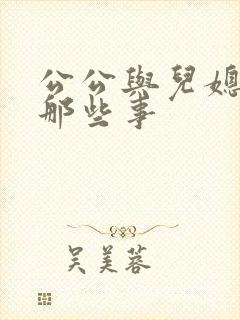 公公與兒媳
那些事
吴美蓉